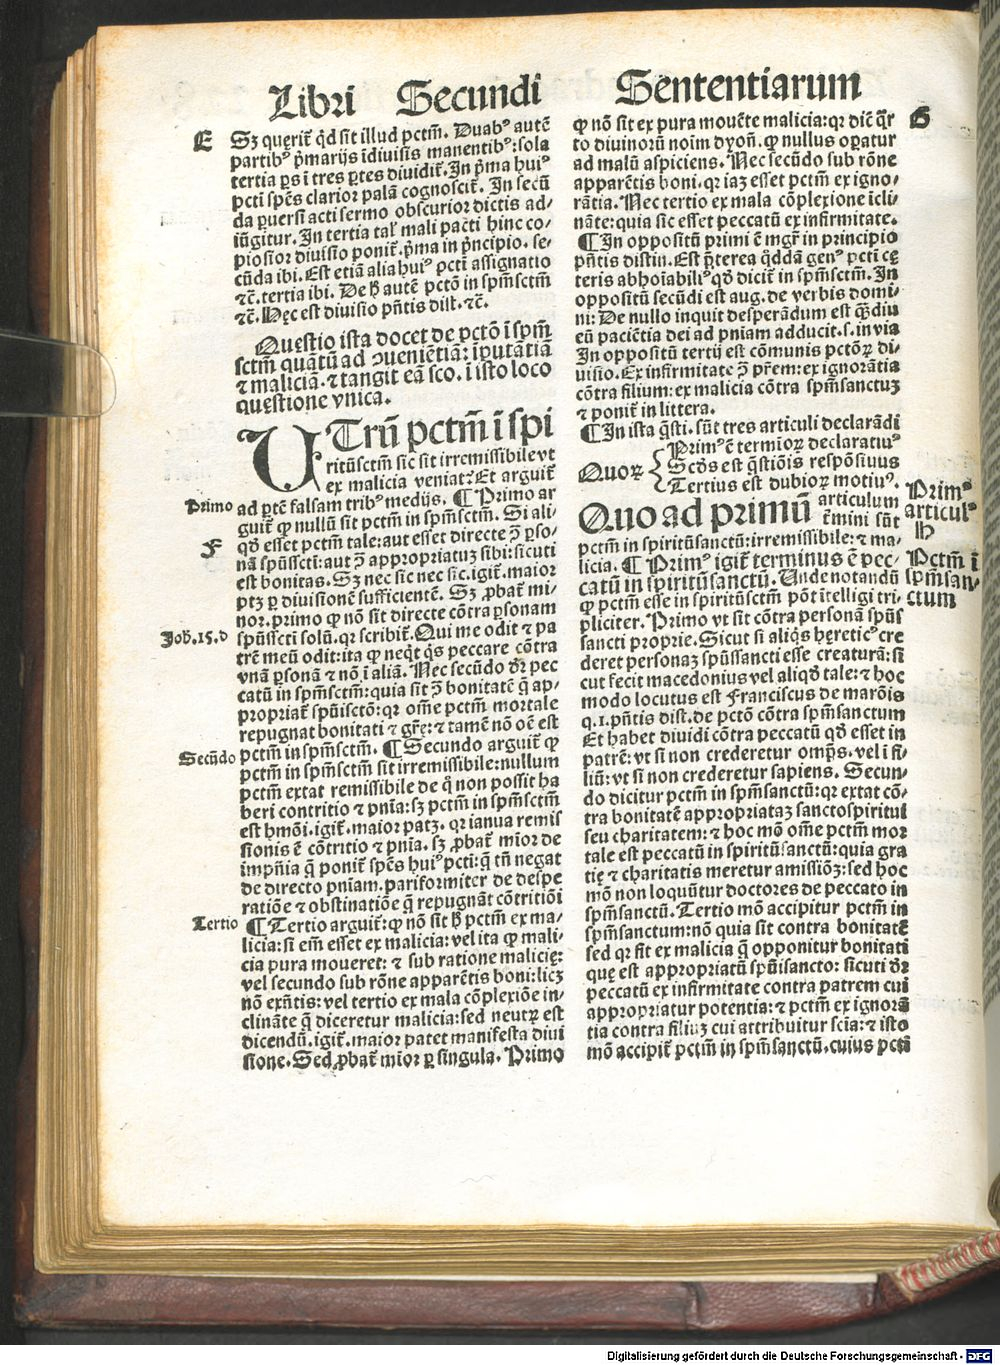 Libri Secundi Sententiarum
E
Sꝫ querit̃ q̃d sit illud pctm̃. Duabꝰ autẽ
partibꝰ p̃marijs ĩdiuisis manentibꝰ: sola
tertia ꝑs ĩ tres ꝑtes diuidit̃. In p̃ma huiꝰ
pcti spẽs clarior palã cognoscit̃. In secũ
da ꝑuersi acti sermo obscurior dictis ad-
iũgitur. In tertia tal̃ mali pac̃ti hinc co-
piosior diuisio ponit̃. p̃ma in p̃ncipio. se-
cũda ibi. Est etiã alia huiꝰ pcti assignatio
⁊c̃. tertia ibi. De ħ autẽ pctõ in spm̃sctm̃
⁊c̃. Hęc est diuisio pñtis dist. ⁊c̃.
Questio ista docet de pctõ ĩ spm̃
sctm̃ quãtũ ad ꝯueniẽtiã: ĩputatiã
⁊ maliciã. ⁊ tangit eã sco. ĩ isto loco
questione vnica.
UTrũ pctm̃ ĩ spi
ritũsctm̃ sic sit irremissibile vt
ex malicia veniat? Et arguit̃
Primo
ad ꝑtẽ falsam tribꝰ medijs. ¶ Primo ar
guit̃ ꝙ nullũ sit pctm̃ in spm̃sctm̃. Si ali-
F
qd̃ esset pctm̃ tale: aut esset directe ꝯ̃ ꝑso-
nã spũsscti: aut ꝯ̃ appropriatuꝫ sibi: sicuti
est bonitas. Sꝫ nec sic nec sic. igit̃. maior
ptꝫ ꝑ diuisionẽ sufficientẽ. Sꝫ ꝓbat̃ mi-
nor. primo ꝙ nõ sit directe cõtra ꝑsonam
Joh. 15. d
spũsscti solũ. qꝛ scribit̃. Qui me odit ⁊ pa
trẽ meũ odit: ita ꝙ neq̃t q̃s peccare cõtra
vnã ꝑsonã ⁊ nõ ĩ aliã. Nec secũdo dr̃ pec
catũ in spm̃sctm̃: quia sit ꝯ̃ bonitatẽ q̃ ap-
propriat̃ spũisctõ: qꝛ om̃e pctm̃ mortale
repugnat bonitati ⁊ gr̃ę: ⁊ tamẽ nõ oẽ est
Secũdo
pctm̃ in spm̃sctm̃. ¶ Secundo arguit̃ ꝙ
pctm̃ in spm̃sctm̃ sit irremissibile: nullum
pctm̃ extat remissibile de q̃ non possit ha
beri contritio ⁊ pnĩa: sꝫ pctm̃ in spm̃sctm̃
est hmõi. igit̃. maior patꝫ. qꝛ ianua remis
sionis ẽ cõtritio ⁊ pnĩa. sꝫ ꝓbat̃ mĩor de
impñia q̃ ponit̃ spẽs huiꝰ pcti: q̃ tñ negat
de directo pniam. pariformiter de despe
ratiõe ⁊ obstinatiõe q̃ repugnãt cõtritiõi
Tertio
¶ Tertio arguit̃: ꝙ nõ sit ħ pctm̃ ex ma-
licia: si em̃ esset ex malicia: vel ita ꝙ mali-
cia pura moueret: ⁊ sub ratione malicię:
vel secundo sub rõne apparẽtis boni: licꝫ
nõ exñtis: vel tertio ex mala cõplexiõe in-
clinãte q̃ diceretur malicia: sed neutꝝ est
dicendũ. igit̃. maior patet manifesta diui
sione. Sed ꝓbat̃ mĩor ꝑ singula. Primo
ꝙ nõ sit ex pura mouẽte malicia: qꝛ dic̃ q̃r
G
to diuinorũ noĩm dyoñ. ꝙ nullus oꝑatur
ad malũ aspiciens. Nec secũdo sub rõne
apparẽtis boni. qꝛ iaꝫ esset pctm̃ ex igno-
rãtia. Nec tertio ex mala cõplexione ĩcli-
nãte: quia sic esset peccatũ ex infirmitate.
¶ In oppositũ primi ẽ mgr̃ in principio
pñtis distin. Est p̃terea q̃ddã genꝰ pcti cę
teris abhoĩabiliꝰ qd̃ dicit̃ in spm̃sctm̃. In
oppositũ secũdi est aug. de verbis domi-
ni: De nullo inquit desperãdum est q̃ꝫdiu
eũ paciẽtia dei ad pniam adducit. s. in via
In oppositũ tertij est cõmunis pctõꝝ di-
uisio. Ex infirmitate ꝯ̃ pr̃em: ex ignorãtia
cõtra filium: ex malicia cõtra spm̃sanctuꝫ
⁊ ponit̃ in littera.
¶ In ista q̃sti. sũt tres articuli declarãdi
Quoꝝ
Primꝰ ẽ termĩoꝝ declaratiuꝰ
Scd̃s est q̃stiõis respõsiuus
Tertius est dubioꝝ motiuꝰ.
Quo ad primũ articulum
tẽmini sũt
Primꝰ
articulꝰ
H
pctm̃ in spiritũsanctũ: irremissibile: ⁊ ma-
licia. ¶ Primꝰ igit̃ terminus ẽ pec-
Pctm̃ ĩ
spm̃san-
ctum
catũ in spiritũsanctũ. Unde notandũ
ꝙ pctm̃ esse in spiritũsctm̃ põt ĩtelligi tri-
pliciter. Primo vt sit cõtra personã spũs
sancti proprie. Sicut si aliq̃s hęreticꝰ cre
deret personaꝫ spũssancti esse creaturã: si
cut fecit macedonius vel aliqd̃ tale: ⁊ hoc
modo locutus est Franciscus de marõis
q. 1. pñtis dist. de pctõ cõtra spm̃sanctum
Et habet diuidi cõtra peccatũ qd̃ esset in
patrẽ: vt si non crederetur omp̃s. vel ĩ fi-
liũ: vt si non crederetur sapiens. Secun-
do dicitur pctm̃ in spm̃sanctũ: qꝛ extat cõ-
tra bonitatẽ appropriataꝫ sanctospiritui
seu charitatem: ⁊ hoc mõ om̃e pctm̃ mor
tale est peccatũ in spiritũsanctũ: quia gra
tię ⁊ charitatis meretur amissiõꝫ: sed hoc
mõ non loquũtur doctores de peccato in
spm̃sanctũ. Tertio mõ accipitur pctm̃ in
spm̃sanctum: nõ quia sit contra bonitatẽ
sed qꝛ fit ex malicia q̃ opponitur bonitati
quę est appropriatũ spũisancto: sicuti dr̃
peccatũ ex infirmitate contra patrem cui
appropriatur potentia: ⁊ pctm̃ ex ignorã
tia contra filiuꝫ cui attribuitur scĩa: ⁊ isto
mõ accipit̃ pctm̃ in spm̃sanctũ. cuius pcti
Digitalisierung gefördert durch die Deutsche Forschungsgemeinschaft - DFG